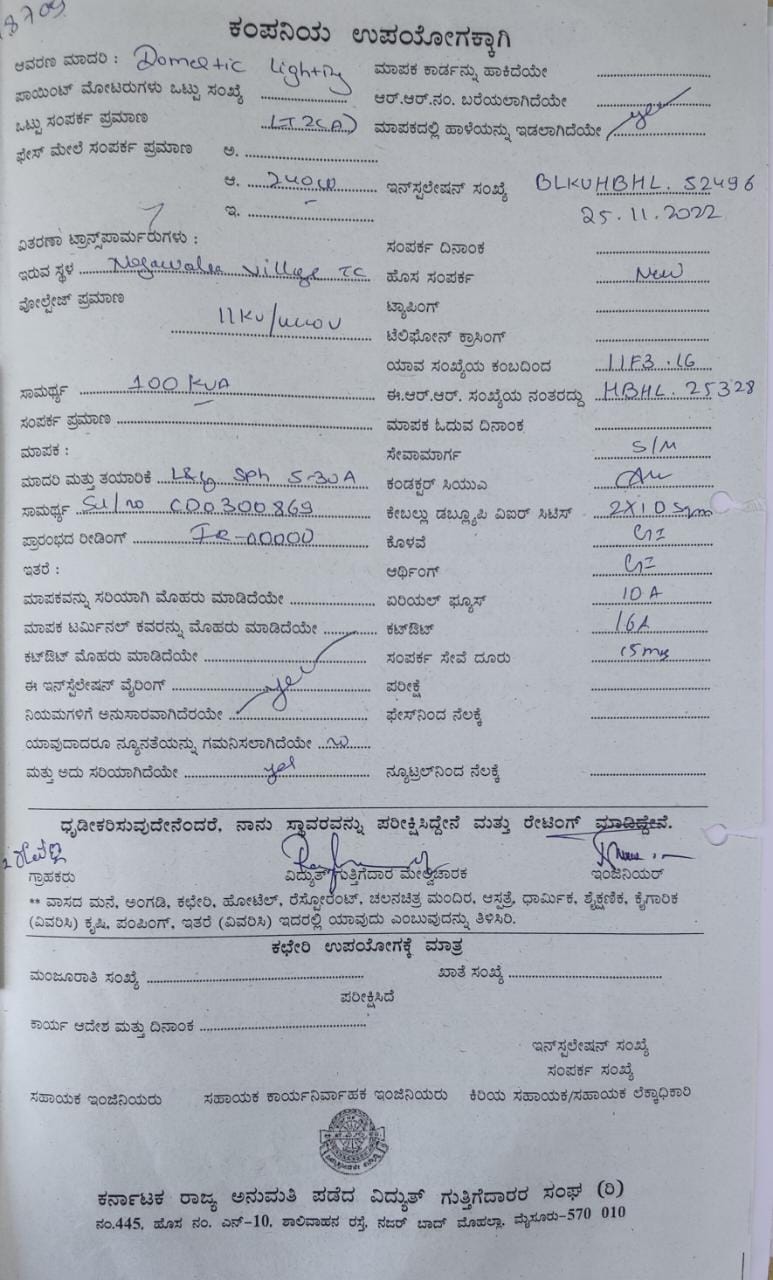 8709
ಕಂಪನಿಯ ಉಪಯೋಗಕ್ಕಾಗಿ
ಆವರಣ ಮಾದರಿ : Domestic Lighting
ಪಾಯಿಂಟ್ ಮೋಟರುಗಳು ಒಟ್ಟು ಸಂಖ್ಯೆ
ಒಟ್ಟು ಸಂಪರ್ಕ ಪ್ರಮಾಣ LT2(A)
ಫೇಸ್ ಮೇಲೆ ಸಂಪರ್ಕ ಪ್ರಮಾಣ ಅ.
ಆ. 240W
ಇ.
ವಿತರಣಾ ಟ್ರಾನ್ಸ್‌ಪಾರ್ಮರುಗಳು :
ಇರುವ ಸ್ಥಳ village TC
ವೋಲ್ಟೇಜ್ ಪ್ರಮಾಣ
11KV/
ಸಾಮರ್ಥ್ಯ 100 KVA
ಸಂಪರ್ಕ ಪ್ರಮಾಣ
ಮಾಪಕ :
ಮಾದರಿ ಮತ್ತು ತಯಾರಿಕೆ L&G Sph 5-30A
ಸಾಮರ್ಥ್ಯ Sl/no CD0300869
ಪ್ರಾರಂಭದ ರೀಡಿಂಗ್ IR-00000
ಇತರೆ :
ಮಾಪಕವನ್ನು ಸರಿಯಾಗಿ ಮೊಹರು ಮಾಡಿದೆಯೇ
ಮಾಪಕ ಟರ್ಮಿನಲ್ ಕವರನ್ನು ಮೊಹರು ಮಾಡಿದೆಯೇ
ಕಟ್‌ಔಟ್ ಮೊಹರು ಮಾಡಿದೆಯೇ
ಈ ಇನ್‌ಸ್ಪಲೇಷನ್ ವೈರಿಂಗ್ yes
ನಿಯಮಗಳಿಗೆ ಅನುಸಾರವಾಗಿದೆರಯೇ
ಯಾವುದಾದರೂ ನ್ಯೂನತೆಯನ್ನು ಗಮನಿಸಲಾಗಿದೆಯೇ no
ಮತ್ತು ಅದು ಸರಿಯಾಗಿದೆಯೇ yes
ಮಾಪಕ ಕಾರ್ಡನ್ನು ಹಾಕಿದೆಯೇ
ಆರ್.ಆರ್.ನಂ. ಬರೆಯಲಾಗಿದೆಯೇ
ಮಾಪಕದಲ್ಲಿ ಹಾಳೆಯನ್ನು ಇಡಲಾಗಿದೆಯೇ yes
ಇನ್‌ಸ್ಪಲೇಷನ್ ಸಂಖ್ಯೆ BLKUHBHL. 52496
25.11.2022
ಸಂಪರ್ಕ ದಿನಾಂಕ
ಹೊಸ ಸಂಪರ್ಕ New
ಟ್ಯಾಪಿಂಗ್
ಟೆಲಿಫೋನ್ ಕ್ರಾಸಿಂಗ್
ಯಾವ ಸಂಖ್ಯೆಯ ಕಂಬದಿಂದ 11F3.16
ಈ.ಆರ್.ಆರ್. ಸಂಖ್ಯೆಯ ನಂತರದ್ದು HBHL. 25328
ಮಾಪಕ ಓದುವ ದಿನಾಂಕ
ಸೇವಾಮಾರ್ಗ S/M
ಕಂಡಕ್ಟರ್ ಸಿಯುಎ
ಕೇಬಲ್ಲು ಡಬ್ಲ್ಯೂಪಿ ವಿಐರ್ ಸಿಟಿಸ್ 2X10 Sqm
ಕೊಳವೆ GI
ಆರ್ಥಿಂಗ್ GI
ಏರಿಯಲ್ ಫ್ಯೂಸ್ 10A
ಕಟ್‌ಔಟ್ 16A
ಸಂಪರ್ಕ ಸೇವೆ ದೂರು 15
ಪರೀಕ್ಷೆ
ಫೇಸ್‌ನಿಂದ ನೆಲಕ್ಕೆ
ನ್ಯೂಟ್ರಲ್‌ನಿಂದ ನೆಲಕ್ಕೆ
ಧೃಡೀಕರಿಸುವುದೇನೆಂದರೆ, ನಾನು ಸ್ಥಾವರವನ್ನು ಪರೀಕ್ಷಿಸಿದ್ದೇನೆ ಮತ್ತು ರೇಟಿಂಗ್ ಮಾಡಿದ್ದೇನೆ.
ಗ್ರಾಹಕರು ವಿದ್ಯುತ್ ಗುತ್ತಿಗೆದಾರ ಮೇಲ್ವಿಚಾರಕ ಇಂಜಿನಿಯರ್
** ವಾಸದ ಮನೆ, ಅಂಗಡಿ, ಕಛೇರಿ, ಹೋಟೆಲ್, ರೆಸ್ಟೋರೆಂಟ್, ಚಲನಚಿತ್ರ ಮಂದಿರ, ಆಸ್ಪತ್ರೆ, ಧಾರ್ಮಿಕ, ಶೈಕ್ಷಣಿಕ, ಕೈಗಾರಿಕ
(ವಿವರಿಸಿ) ಕೃಷಿ, ಪಂಪಿಂಗ್, ಇತರೆ (ವಿವರಿಸಿ) ಇದರಲ್ಲಿ ಯಾವುದು ಎಂಬುವುದನ್ನು ತಿಳಿಸಿರಿ.
ಕಛೇರಿ ಉಪಯೋಗಕ್ಕೆ ಮಾತ್ರ
ಮಂಜೂರಾತಿ ಸಂಖ್ಯೆ ಖಾತೆ ಸಂಖ್ಯೆ
ಪರೀಕ್ಷಿಸಿದೆ
ಕಾರ್ಯ ಆದೇಶ ಮತ್ತು ದಿನಾಂಕ
ಇನ್‌ಸ್ಪಲೇಷನ್ ಸಂಖ್ಯೆ
ಸಂಪರ್ಕ ಸಂಖ್ಯೆ
ಸಹಾಯಕ ಇಂಜಿನಿಯರು ಸಹಾಯಕ ಕಾರ್ಯನಿರ್ವಾಹಕ ಇಂಜಿನಿಯರು ಕಿರಿಯ ಸಹಾಯಕ/ಸಹಾಯಕ ಲೆಕ್ಕಾಧಿಕಾರಿ
ಕರ್ನಾಟಕ ರಾಜ್ಯ ಅನುಮತಿ ಪಡೆದ ವಿದ್ಯುತ್ ಗುತ್ತಿಗೆದಾರರ ಸಂಘ (ರಿ)
ನಂ.445, ಹೊಸ ನಂ. ಎನ್-10, ಶಾಲಿವಾಹನ ರಸ್ತೆ, ನಜರ್ ಬಾದ್ ಮೊಹಲ್ಲಾ, ಮೈಸೂರು-570 010